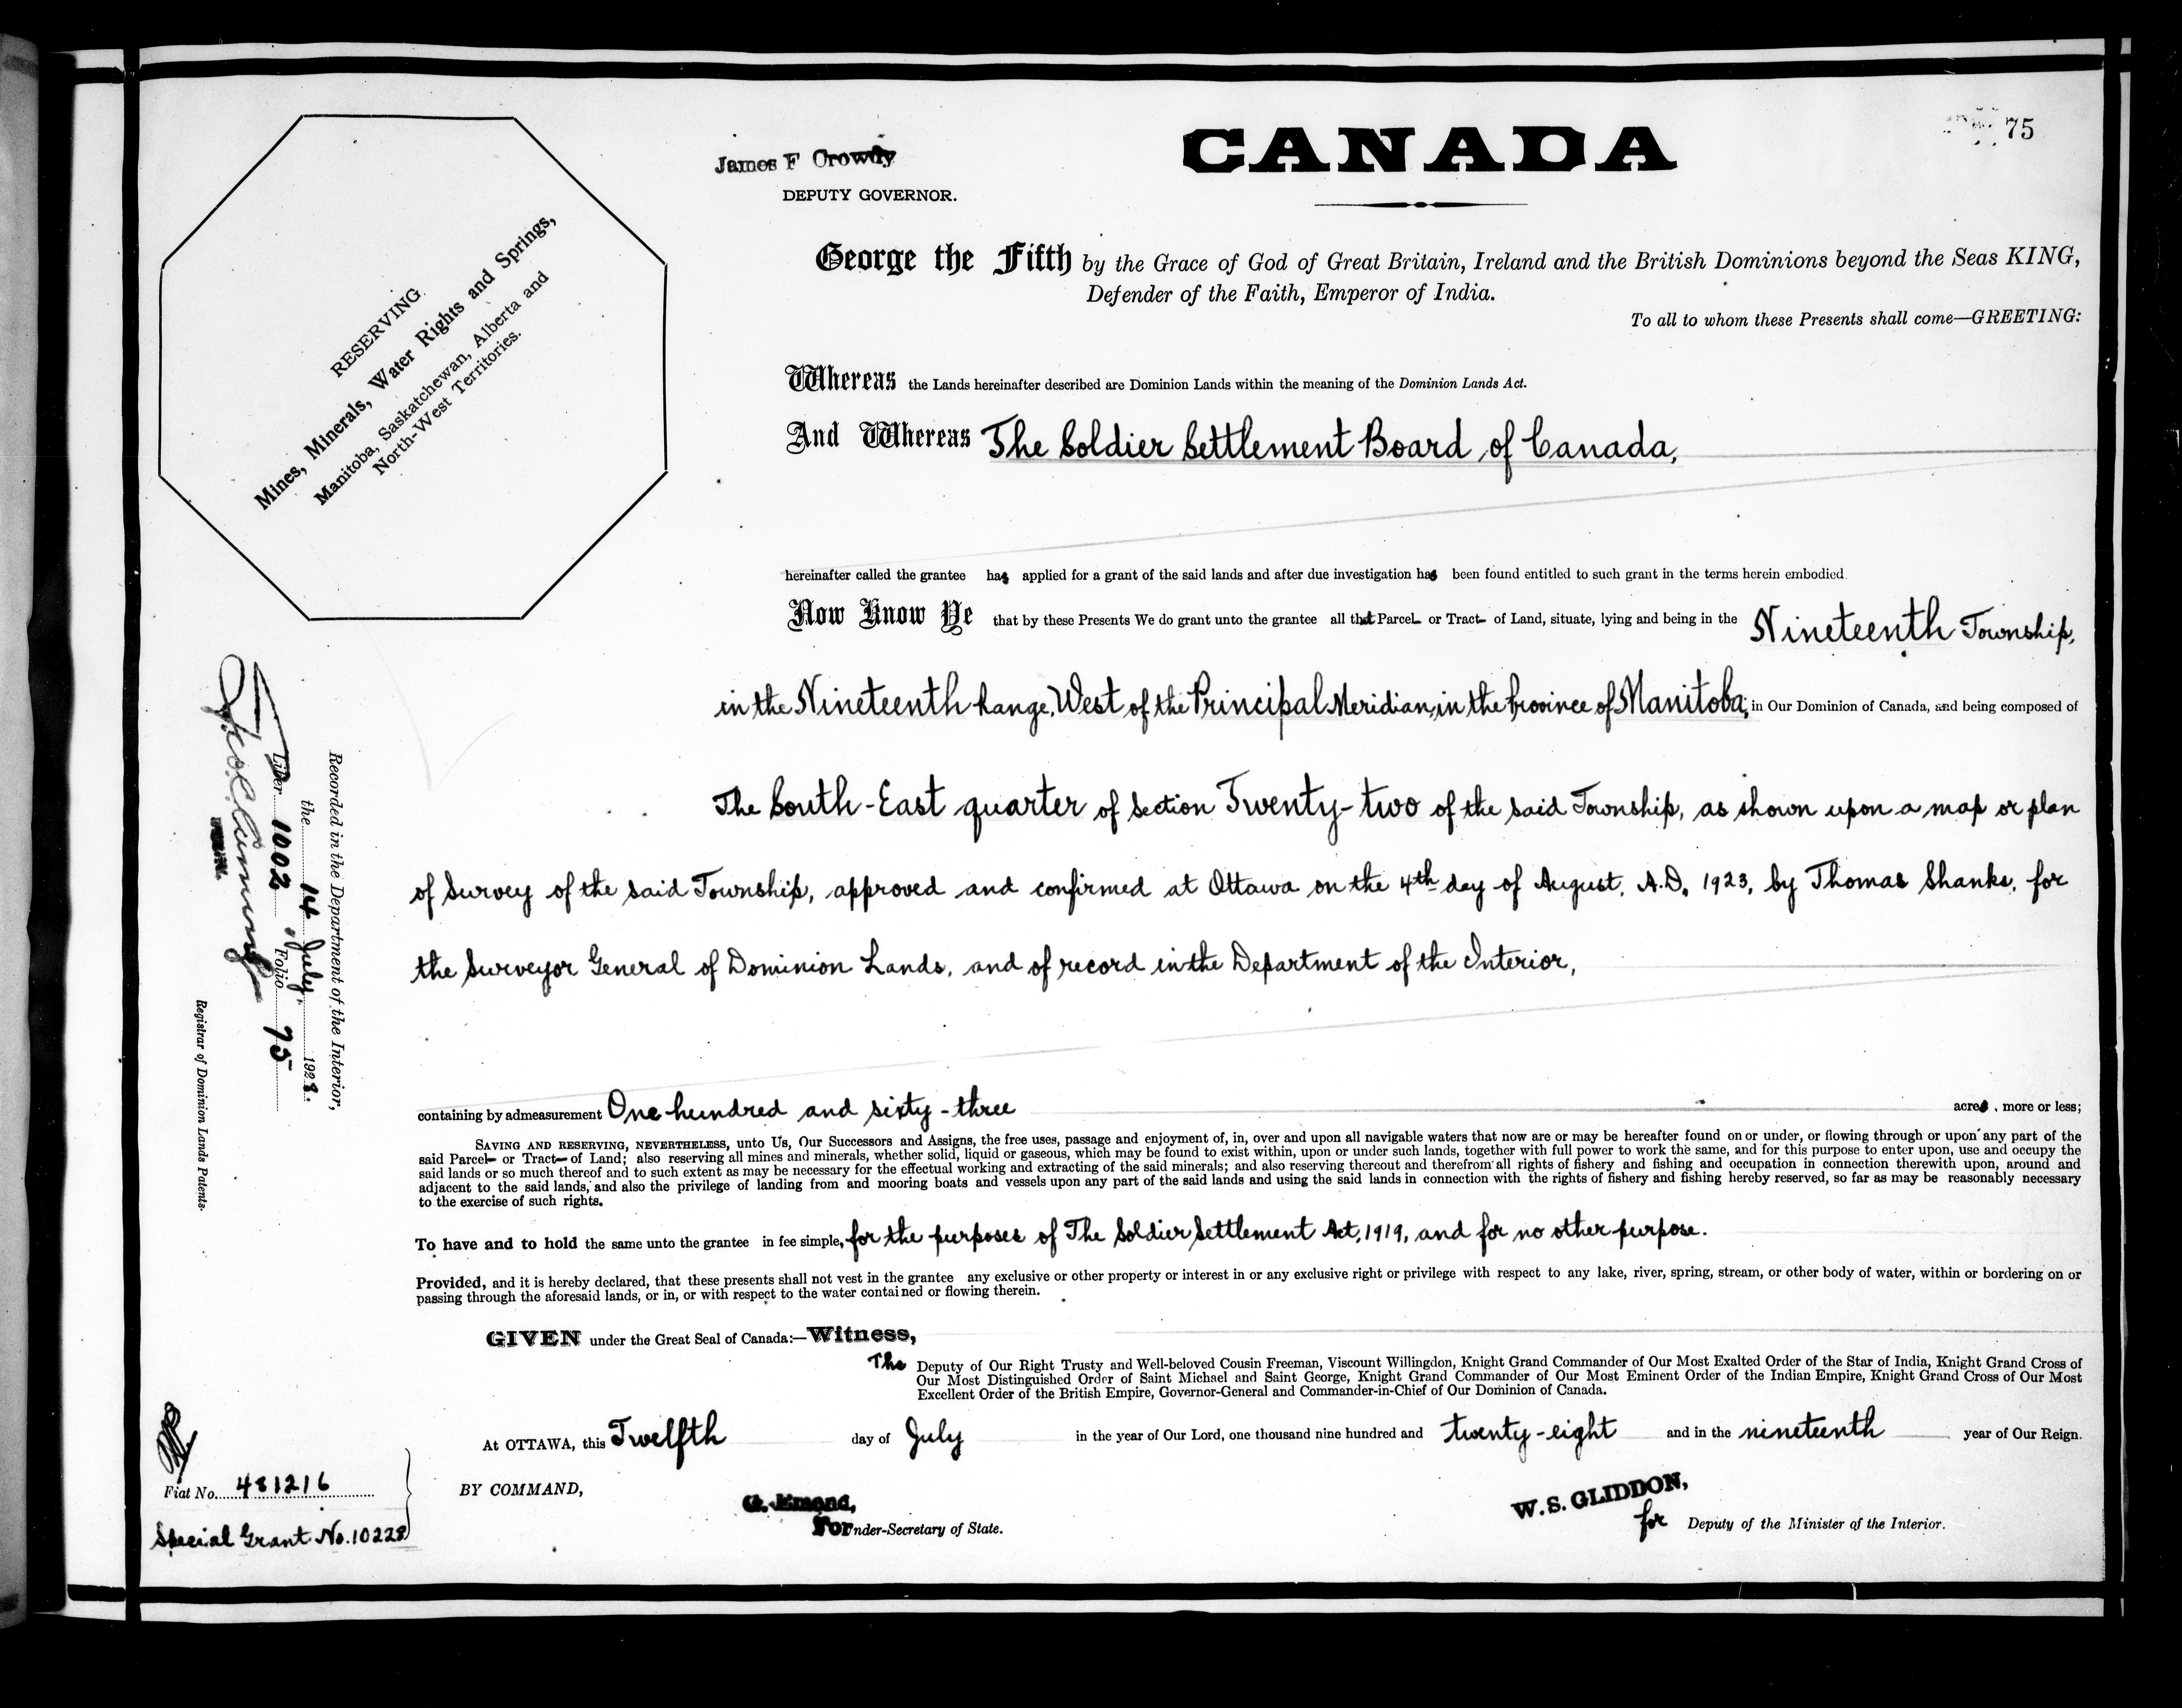 75
James F Crowdy
DEPUTY GOVERNOR.
CANADA
RESERVING
Mines, Minerals, Water Rights and Springs,
Manitoba, Saskatchewan, Alberta and
North-West Territories.
George the Fifth by the Grace of God of Great Britain, Ireland and the British Dominions beyond the Seas KING,
Defender of the Faith, Emperor of India.
To all to whom these Presents shall come—GREETING:
Whereas the Lands hereinafter described are Dominion Lands within the meaning of the Dominion Lands Act.
And Whereas The Soldier Settlement Board of Canada,
hereinafter called the grantee has applied for a grant of the said lands and after due investigation has been found entitled to such grant in the terms herein embodied.
Now Know Ye that by these Presents We do grant unto the grantee all that Parcel or Tract of Land, situate, lying and being in the Nineteenth Township,
in the Nineteenth Range, West of the Principal Meridian, in the Province of Manitoba, in Our Dominion of Canada, and being composed of
The South-East quarter of section Twenty-two of the said Township, as shown upon a map or plan
of survey of the said Township, approved and confirmed at Ottawa on the 4th day of August, A.D. 1923, by Thomas Shanks, for
the Surveyor General of Dominion Lands, and of record in the Department of the Interior,
containing by admeasurement One hundred and sixty-three acres, more or less;
SAVING AND RESERVING, NEVERTHELESS, unto Us, Our Successors and Assigns, the free uses, passage and enjoyment of, in, over and upon all navigable waters that now are or may be hereafter found on or under, or flowing through or upon any part of the
said Parcel or Tract of Land; also reserving all mines and minerals, whether solid, liquid or gaseous, which may be found to exist within, upon or under such lands, together with full power to work the same, and for this purpose to enter upon, use and occupy the
said lands or so much thereof and to such extent as may be necessary for the effectual working and extracting of the said minerals; and also reserving thereout and therefrom all rights of fishery and fishing and occupation in connection therewith upon, around and
adjacent to the said lands, and also the privilege of landing from and mooring boats and vessels upon any part of the said lands and using the said lands in connection with the rights of fishery and fishing hereby reserved, so far as may be reasonably necessary
to the exercise of such rights.
To have and to hold the same unto the grantee in fee simple, for the purposes of The Soldier Settlement Act, 1919, and for no other purpose.
Provided, and it is hereby declared, that these presents shall not vest in the grantee any exclusive or other property or interest in or any exclusive right or privilege with respect to any lake, river, spring, stream, or other body of water, within or bordering on or
passing through the aforesaid lands, or in, or with respect to the water contained or flowing therein.
GIVEN under the Great Seal of Canada:—Witness,
The Deputy of Our Right Trusty and Well-beloved Cousin Freeman, Viscount Willingdon, Knight Grand Commander of Our Most Exalted Order of the Star of India, Knight Grand Cross of
Our Most Distinguished Order of Saint Michael and Saint George, Knight Grand Commander of Our Most Eminent Order of the Indian Empire, Knight Grand Cross of Our Most
Excellent Order of the British Empire, Governor-General and Commander-in-Chief of Our Dominion of Canada.
At OTTAWA, this Twelfth day of July in the year of Our Lord, one thousand nine hundred and twenty-eight and in the nineteenth year of Our Reign.
BY COMMAND,
G. Emond,
For nder-Secretary of State.
W. S. GLIDDON,
for Deputy of the Minister of the Interior.
Recorded in the Department of the Interior,
the 14 July, 1928.
Liber 1002, Folio 75
Registrar of Dominion Lands Patents.
Fiat No. 481216
Special Grant No. 10228